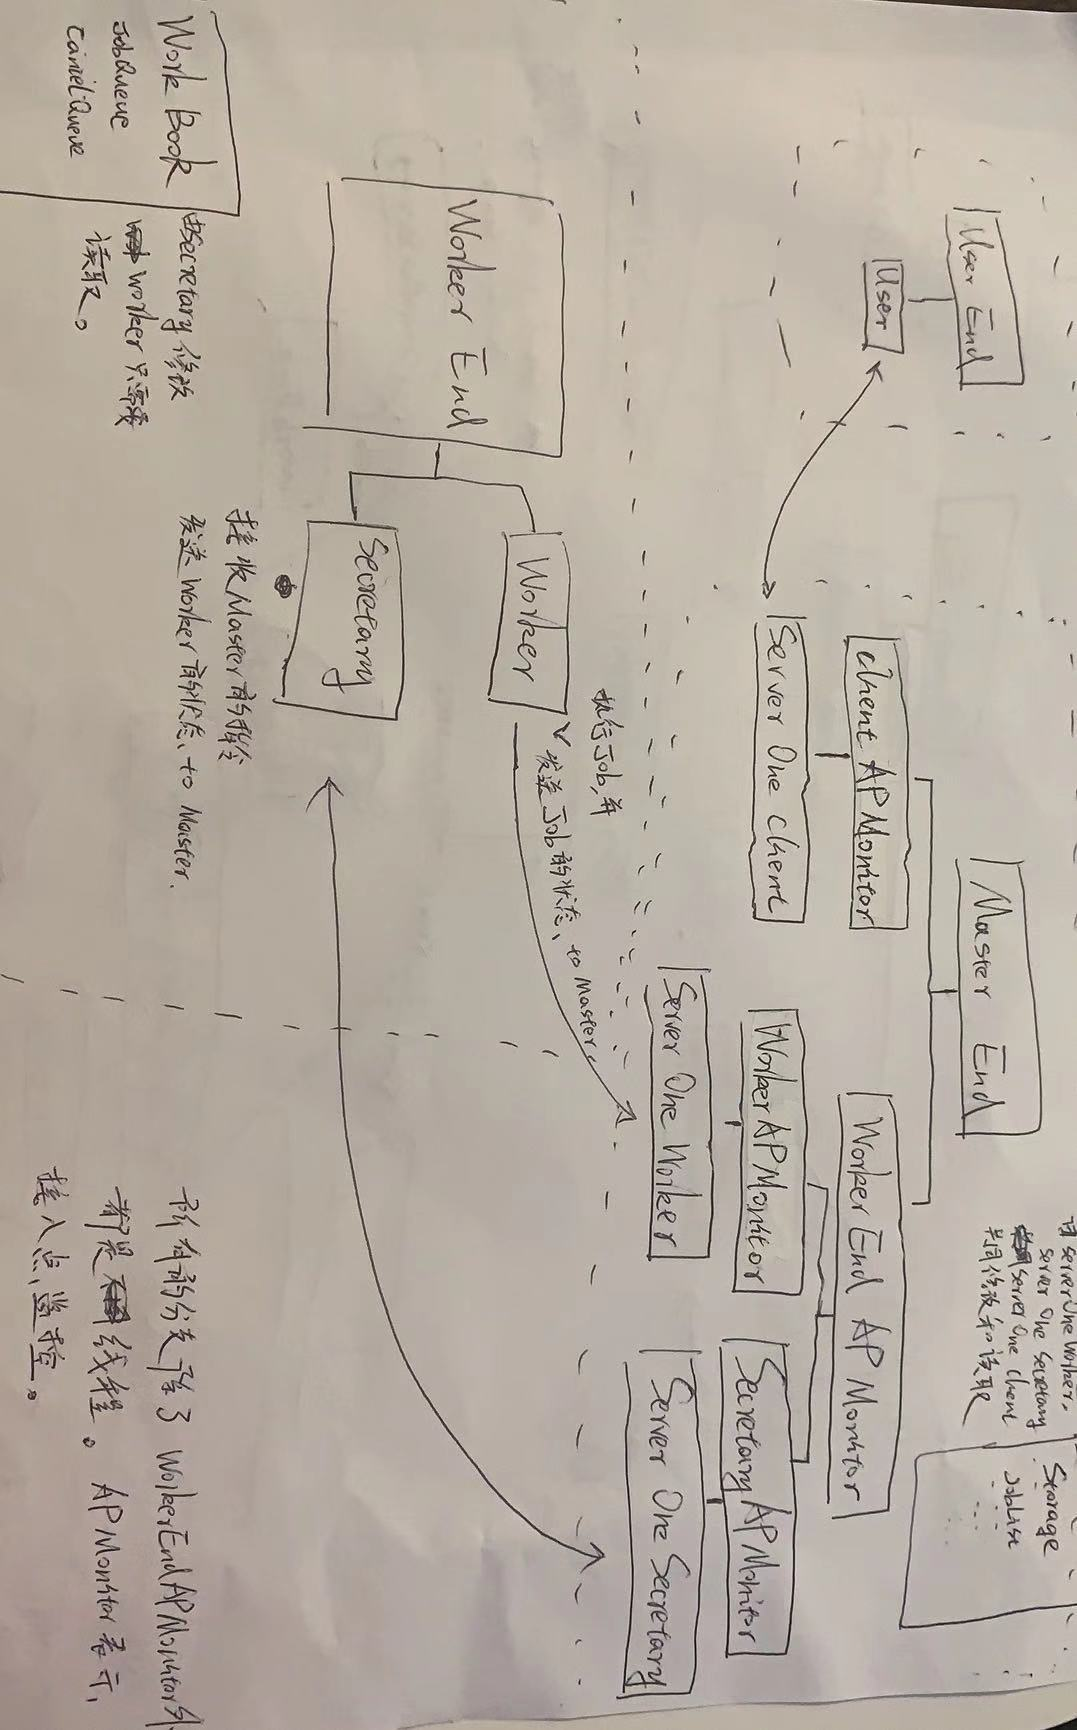 User End
User
Master End
Client APMonitor
Server One Client
WorkerEnd APMonitor
WorkerAPMonitor
Server One Worker
SecretaryAPMonitor
Server One Secretary
由serverOne Worker,
server One Secretary
server One Client
共同修改和读取
Storage
JobList
...
...
Worker End
Worker
执行Job,并
发送Job的状态, to Master.
Secretary
接收Master的指令
发送Worker的状态, to Master.
Work Book
JobQueue
CancelQueue
由Secretary修改
worker只需要
读取。
所有的分支除了WorkerEndAPMonitor外,
都是线程。APMonitor表示,
接入点,监控。